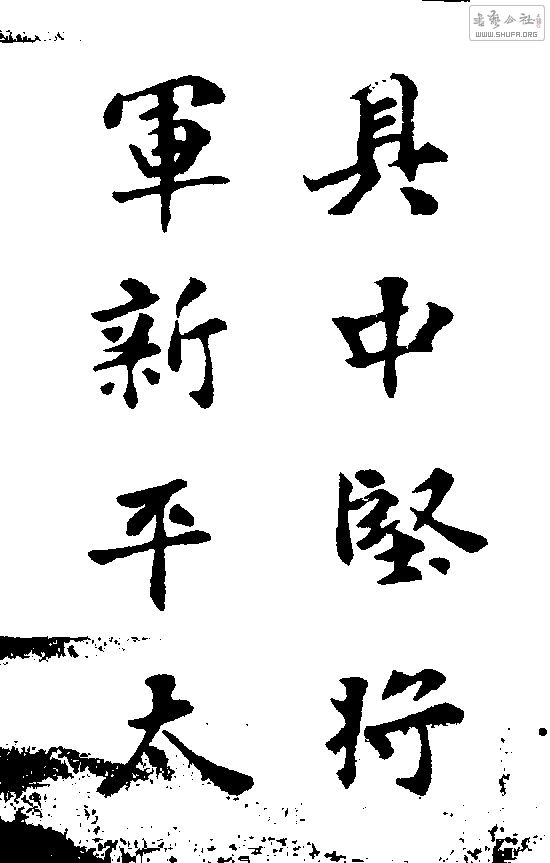 具中堅將
軍新平太
書藝公社
WWW.SHUFA.ORG